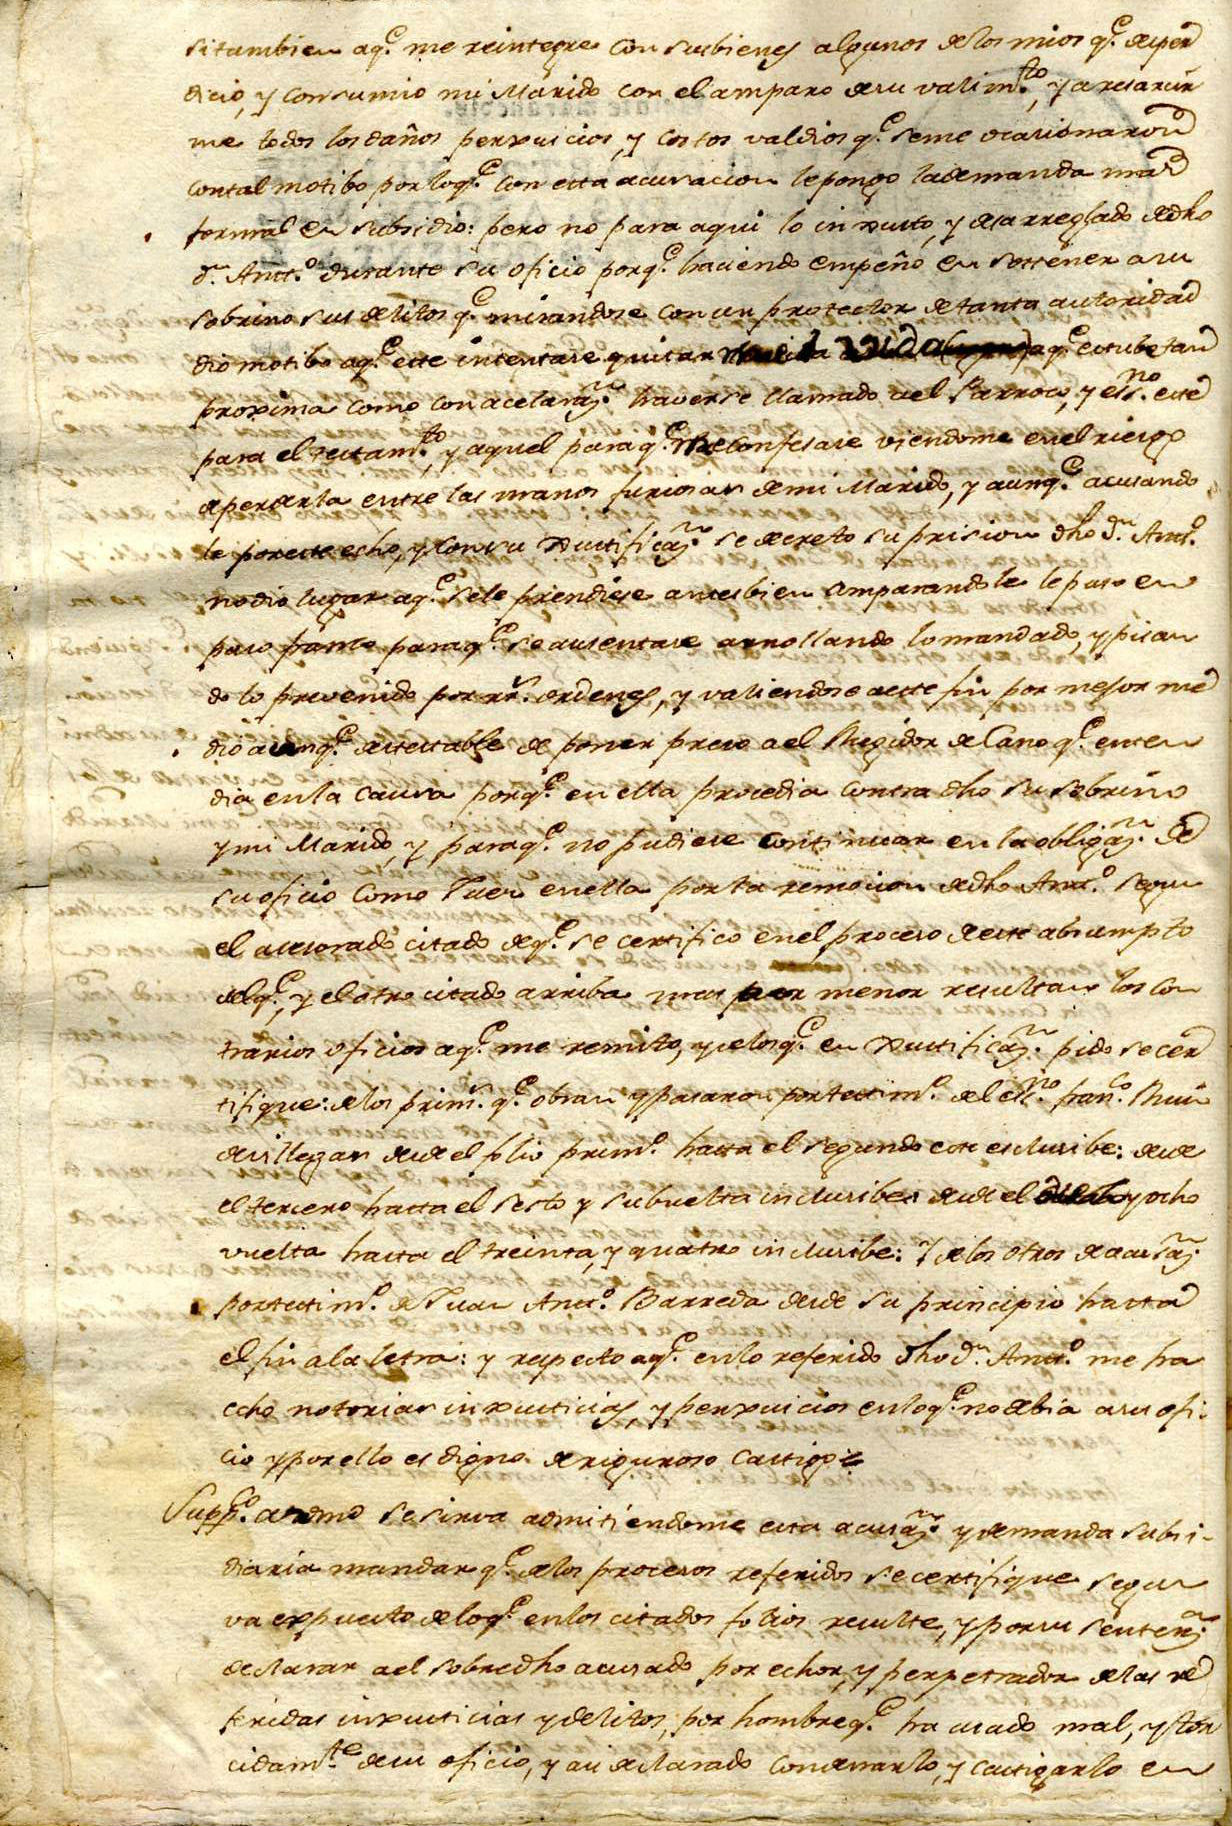 si tambien a q.e me reintegre con subienes algunos de los mios q.e deper
dicio, y consumio mi Marido con el amparo de su valim.to, y a resarcir
me todos los daños perxuicios, y costos valdios q.e seme ocasionaron
contal motibo por loq.e con esta acusacion lepongo lademanda mas
formal en subsidio: pero no para aqui lo inxusto, y desarreglado dedho
d.n Ant.o durante su oficio porq.e haciendo empeño en sostener asu
sobrino sus delitos q.e mirandose con un protector de tanta autoridad
dio motibo aq.e este intentase quitar la vida aq.e estube tan
proxima como con acelaraz.n haverse llamado ael Parroco, y ess.no este
para el testam.to, y aquel para q.e me confesase viendome en el riesgo
de perderla entre las manos furiosas demi Marido, y aunq.e acusando
le poreste echo, y con su xustificaz.n se decreto su prision dho d.n Ant.o
nodio lugar aq.e sele prendiese antesbien amparandole le puso en
paso franco paraq.e se ausentase arrollando lo mandado, y pisan
do lo prevenido por rr.s ordenes, y valiendose aeste fin por mejor me
dio aunq.e detestable de poner preso ael Regidor decano q.e enten
dia enla causa porq.e en ella procedia contra dho su sobrino
y mi Marido, y paraq.e no pudiese continuar en la obligaz.n de
su oficio como Juez enella por la remocion dedho Ant.o segun
el asesorado citado deq.e se certifico enel proceso deeste absumpto
delq.e, y el otro citado arriba mas por menor resultan los con
trarios oficios aq.e me remito, y delosq.e en xustificaz.n pido secer
tifique: delos prim.s q.e obran y pasaron portestim.o de el ess.no fran.co Ruiz
devillegas desde el folio prim.o hasta el segundo este esclusibe: desde
el tercero hasta el sesto y subuelta inclusibe: desde el y ocho
vuelta hasta el treinta, y quatro inclusibe: Y delos otros deacusaz.n
portestim.o de Juan Ant.o Barreda desde su principio hasta
el fin ala letra: y respecto aq.e enlo referido dho d.n Ant.o me ha
echo notorias inxusticias, y perxuicios enloq.e nodebia asu ofi-
cio y por ello es digno de riguroso castigo:
Supp.co a vdmd sesirva admitiendome esta acusaz.n y demanda subsi-
diaria mandar q.e delos procesos referidos secertifique segun
va expuesto deloq.e enlos citados folios resulte, y porsu sentenz.a
declarar ael sobredho acusado por echor, y perpetrador delas re
feridas inxusticias y delitos, por hombre q.e ha usado mal, y tor
cidam.te desu oficio, y asi declarado condenarlo, y castigarlo en